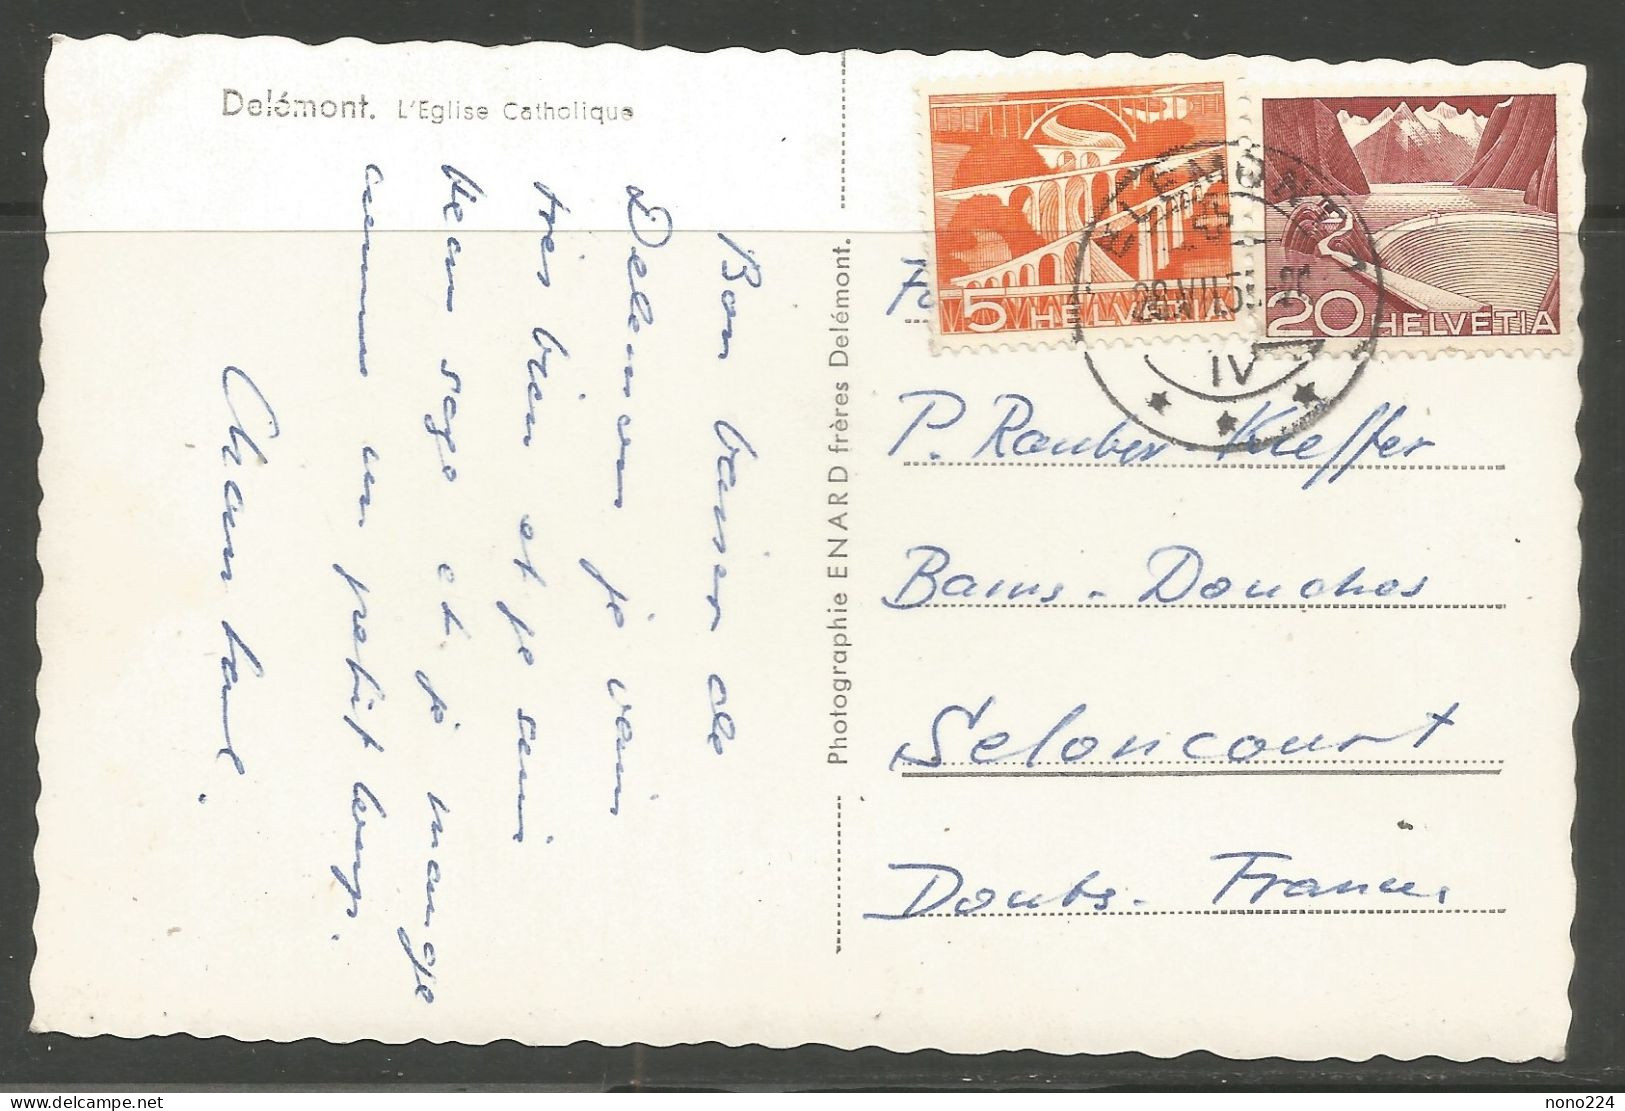 Delémont. L'Eglise Catholique
Bon baiser de
Delémont je vais
très bien et je suis
bien sage et je mange
comme un petit loup.
Chantal.
Photographie ENARD frères Delémont.
5 HELVETIA
20 HELVETIA
DELÉMONT
IV
P. Rauber Kieffer
Bains-Douches
Seloncourt
Doubs. France.
nono224
delcampe.net